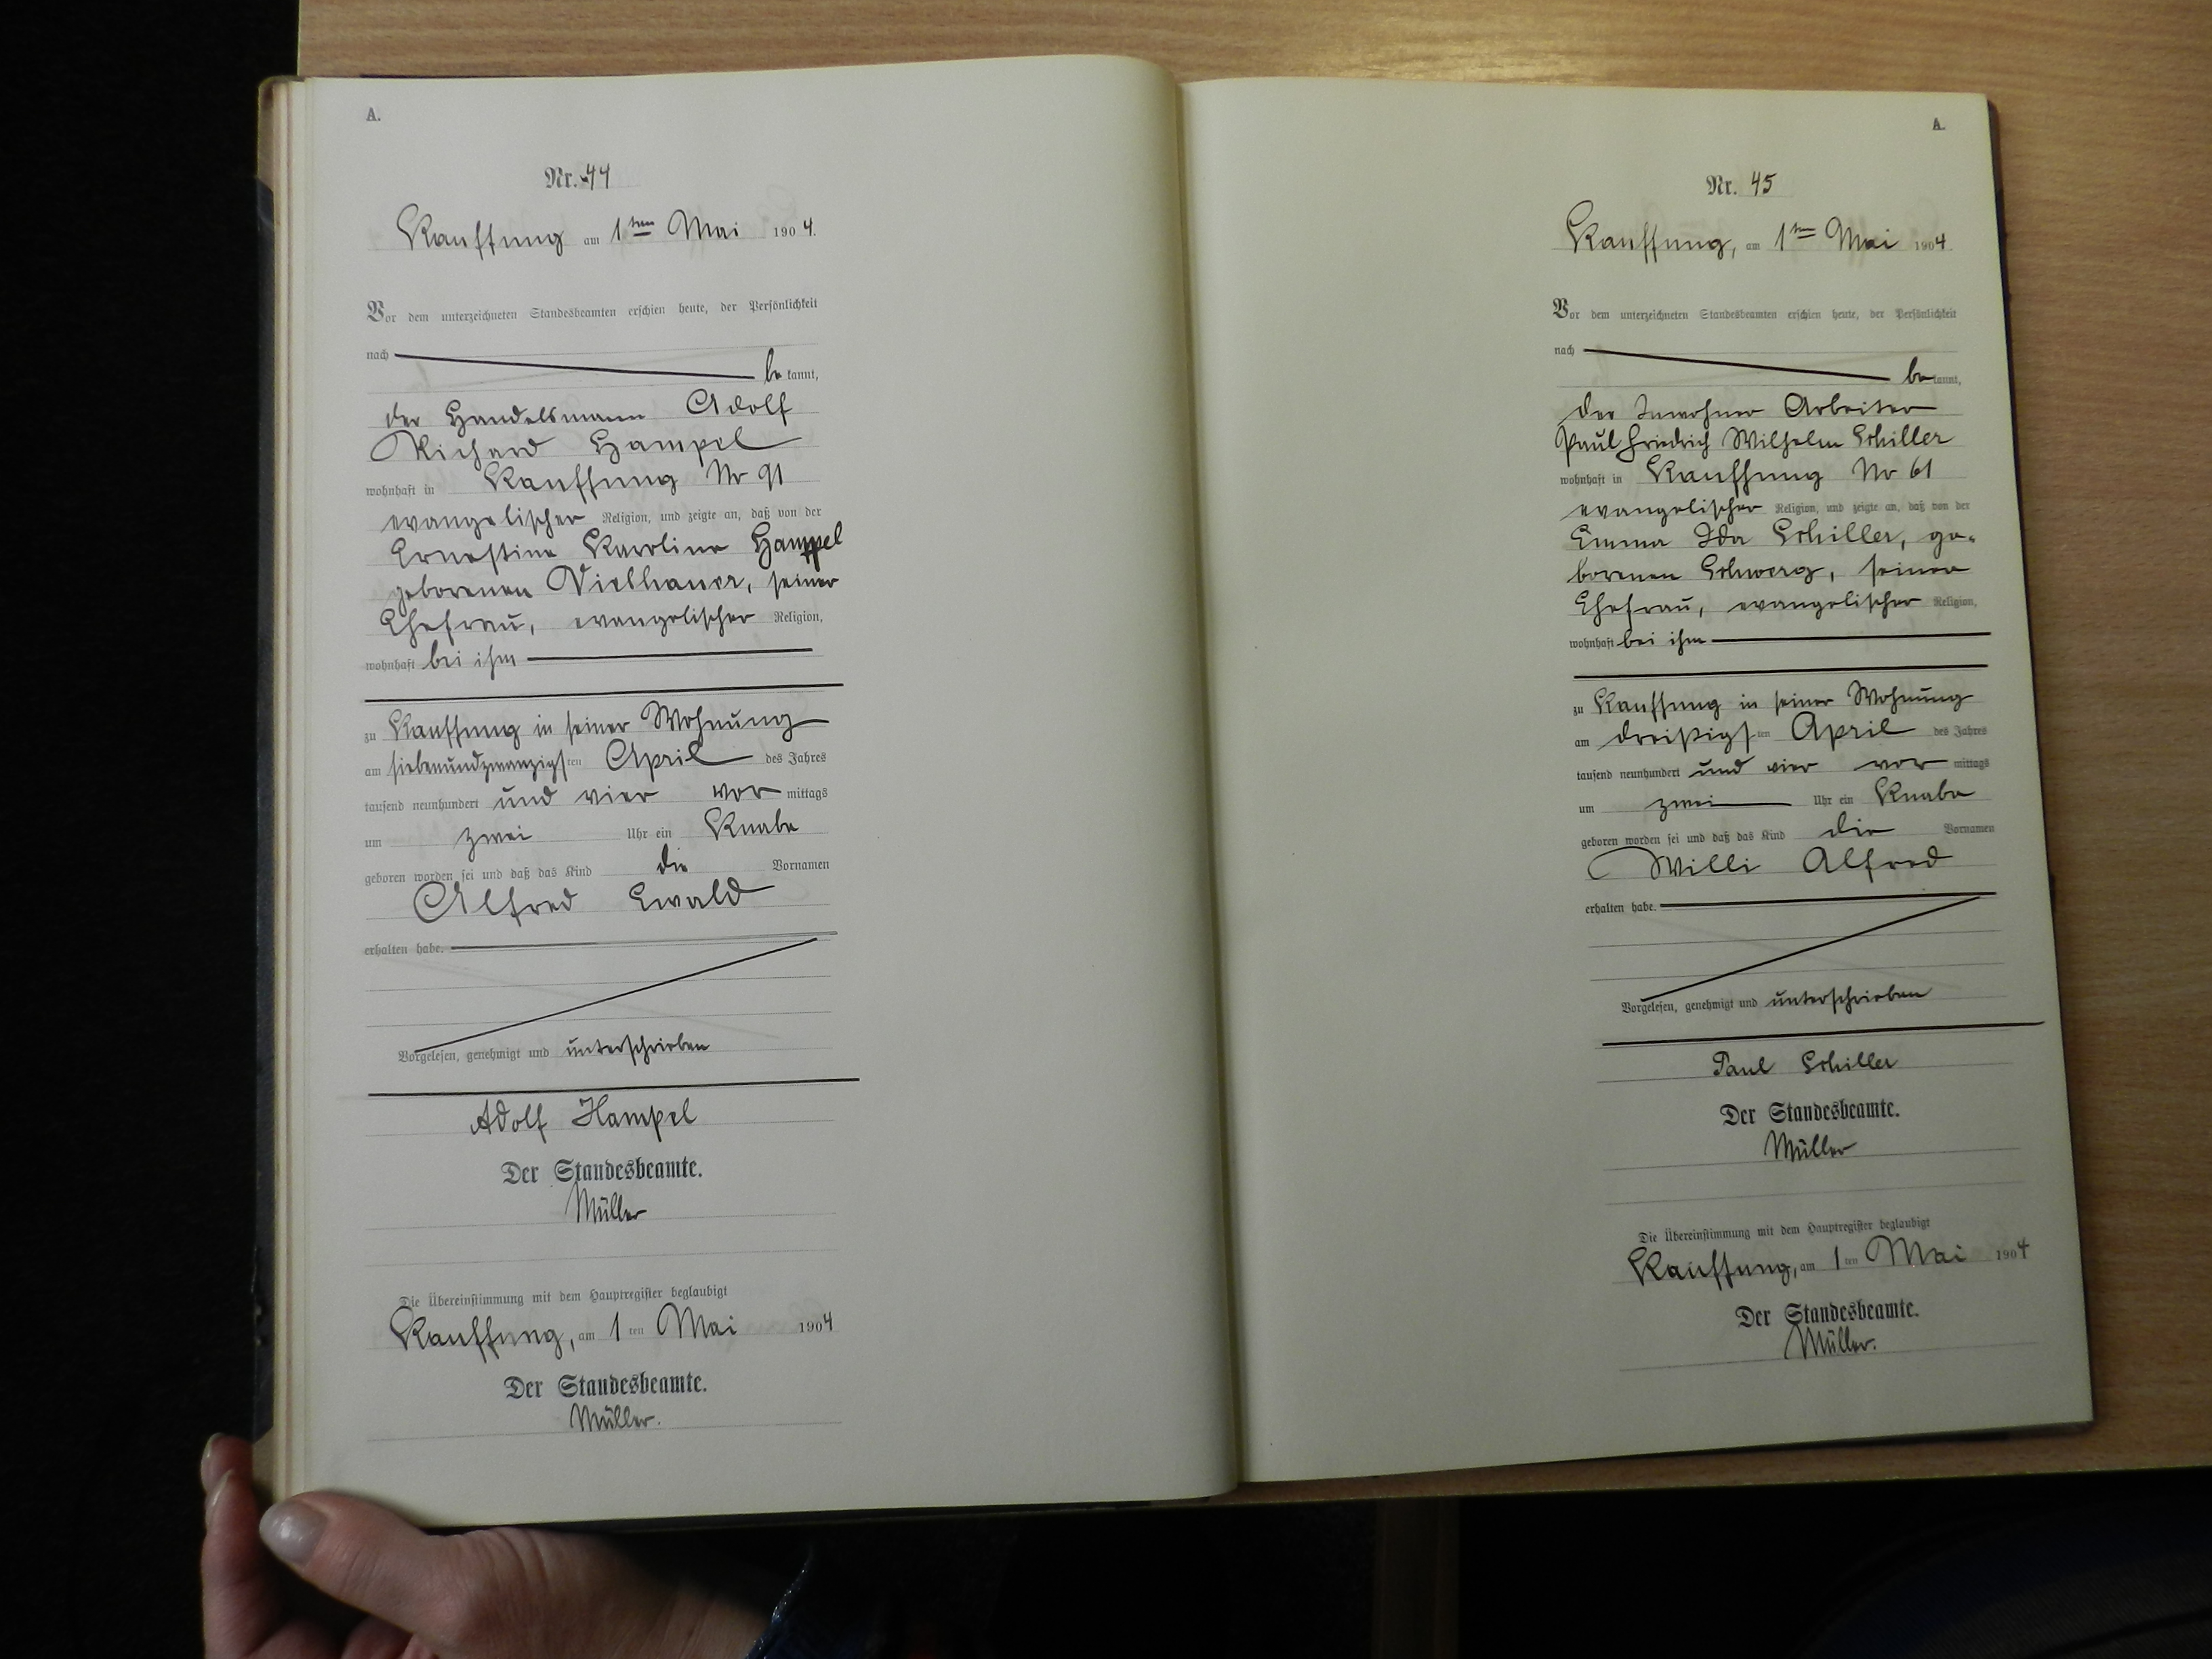 A.
Nr. 44
Kauffung am 1ten Mai 1904.
Vor dem unterzeichneten Standesbeamten erschien heute, der Persönlichkeit
nach
bekannt,
der Handelsmann Adolf
Richard Hampel
wohnhaft in Kauffung Nr 91
evangelischer Religion, und zeigte an, daß von der
Ernestine Karoline Hampel
geborenen Vielhauer, seiner
Ehefrau, evangelischer Religion,
wohnhaft bei ihm
zu Kauffung in seiner Wohnung
am siebenundzwanzigsten April des Jahres
tausend neunhundert und vier vormittags
um zwei Uhr ein Knabe
geboren worden sei und daß das Kind die Vornamen
Alfred Ewald
erhalten habe.
Vorgelesen, genehmigt und unterschrieben
Adolf Hampel
Der Standesbeamte.
Müller
Die Übereinstimmung mit dem Hauptregister beglaubigt
Kauffung, am 1ten Mai 1904
Der Standesbeamte.
Müller.
A.
Nr. 45
Kauffung, am 1ten Mai 1904.
Vor dem unterzeichneten Standesbeamten erschien heute, der Persönlichkeit
nach
bekannt,
der Inwohner Arbeiter
Paul Friedrich Wilhelm Schiller
wohnhaft in Kauffung Nr 61
evangelischer Religion, und zeigte an, daß von der
Emma Ida Schiller, ge-
borenen Schwerg, seiner
Ehefrau, evangelischer Religion,
wohnhaft bei ihm
zu Kauffung in seiner Wohnung
am dreißigsten April des Jahres
tausend neunhundert und vier vormittags
um zwei Uhr ein Knabe
geboren worden sei und daß das Kind die Vornamen
Willi Alfred
erhalten habe.
Vorgelesen, genehmigt und unterschrieben
Paul Schiller
Der Standesbeamte.
Müller
Die Übereinstimmung mit dem Hauptregister beglaubigt
Kauffung, am 1ten Mai 1904
Der Standesbeamte.
Müller.